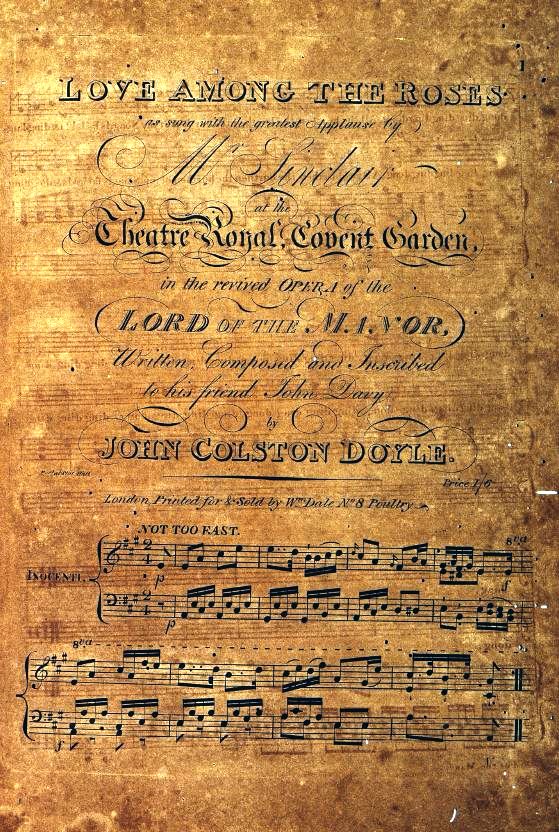 1
LOVE AMONG THE ROSES
as sung with the greatest Applause by
Mr. Sinclair
at the
Theatre Royal, Covent Garden,
in the revived OPERA of the
LORD OF THE MANOR,
Written, Composed and Inscribed
to his friend John Davy,
by
JOHN COLSTON DOYLE.
Price 1/6
London, Printed for & Sold by Wm. Dale No. 8 Poultry
NOT TOO FAST.
8va
INOCENTE.
p
f
p
8va
f